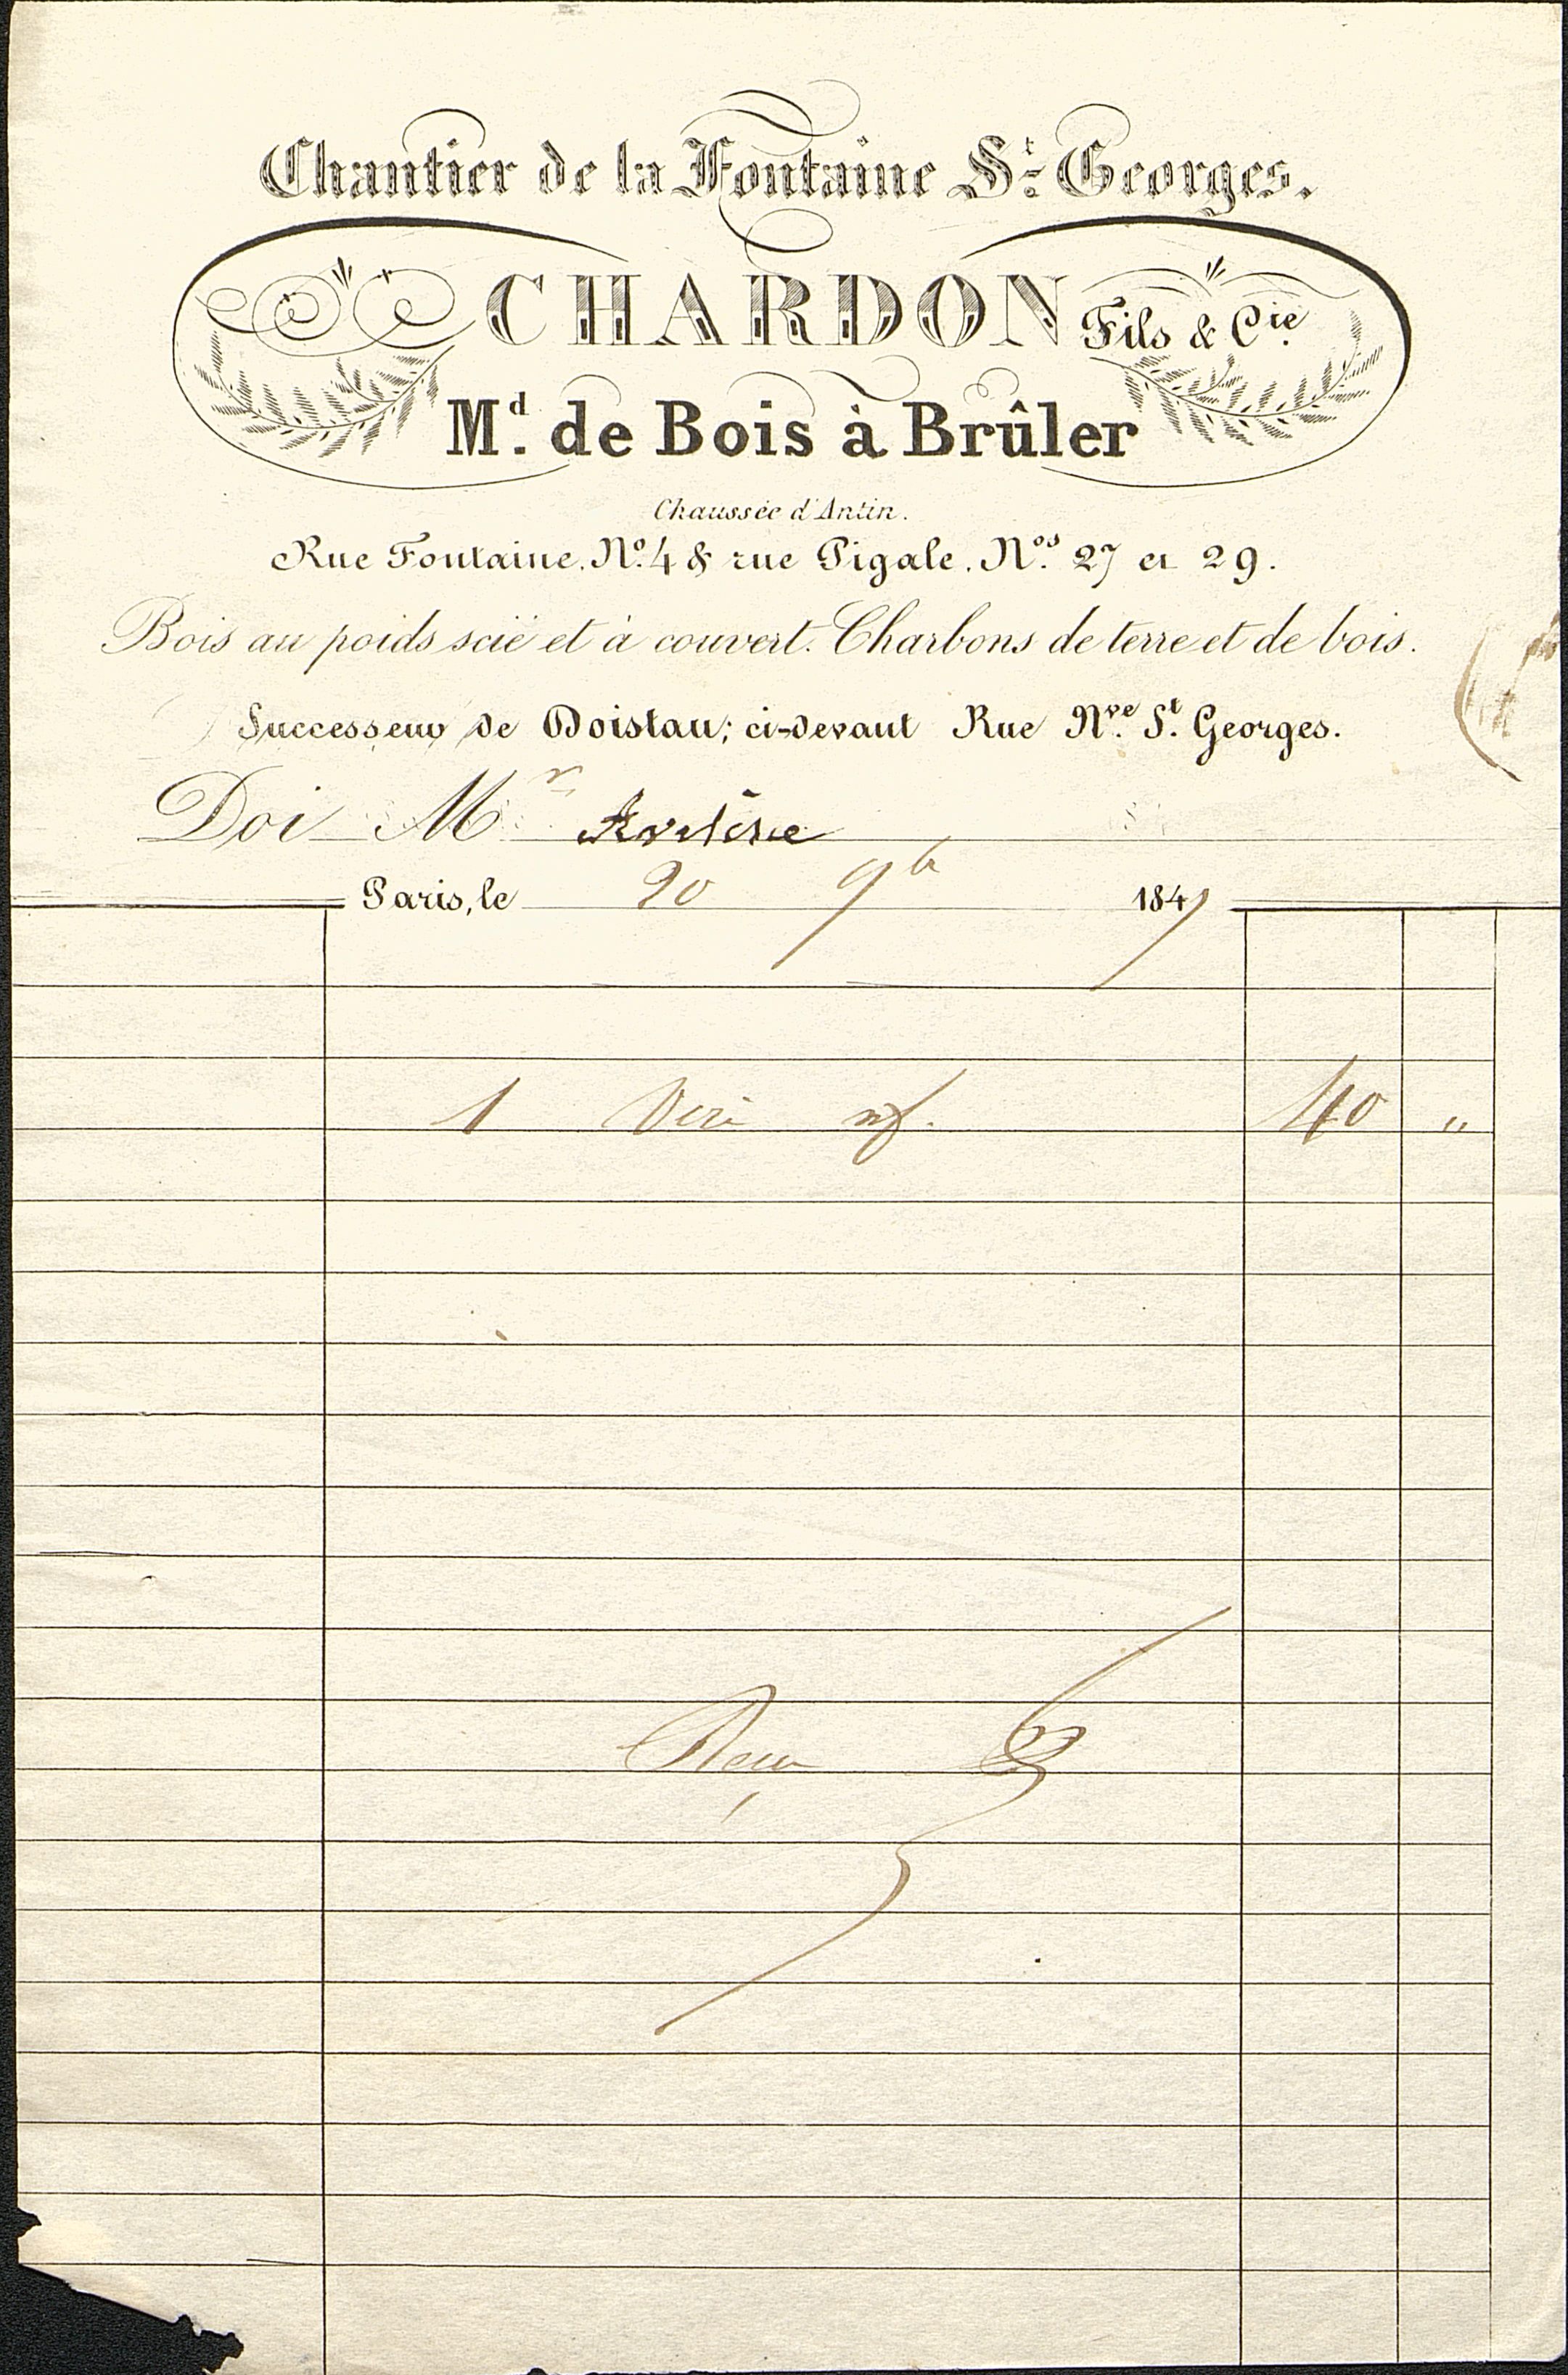 Chantier de la Fontaine St Georges.
CHARDON Fils & Cie
Md. de Bois à Brûler
Chaussée d'Antin.
Rue Fontaine, No. 4 & rue Pigale, Nos. 27 et 29.
Bois au poids scié et à couvert. Charbons de terre et de bois.
Successeur de Doistau; ci-devant Rue Nve. St. Georges.
Doi Mr
Paris, le 20 9b 1847
1 40 "
Reçu